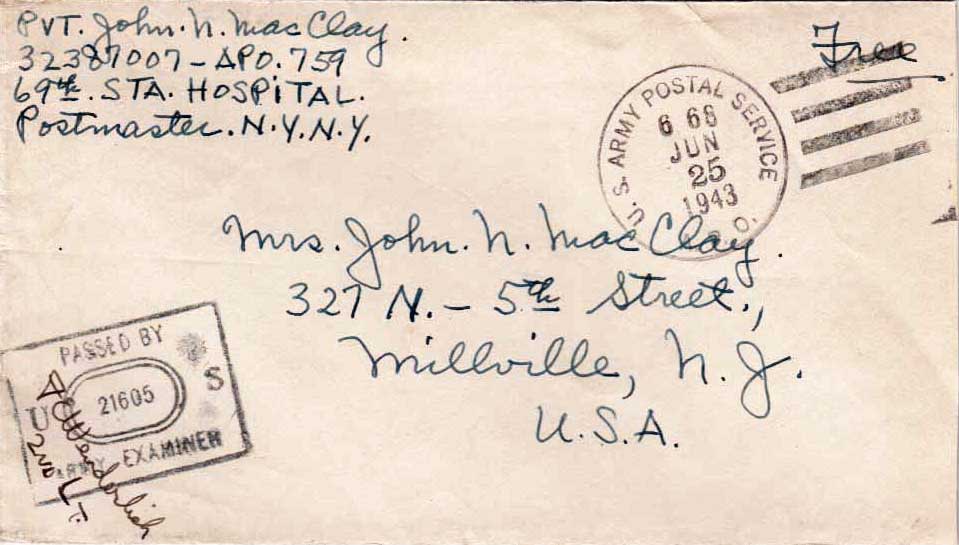 PVT. John. N. MacClay.
32387007 - APO. 759
69th. STA. HOSPiTAL.
Postmaster. N.Y. N.Y.
Free
U.S. ARMY POSTAL SERVICE
JUN
25
1943
Mrs. John. N. MacClay.
327 N. - 5th Street.,
Millville, N. J.
U.S.A.
PASSED BY
U 21605 S
ARMY EXAMINER
2ND LT.